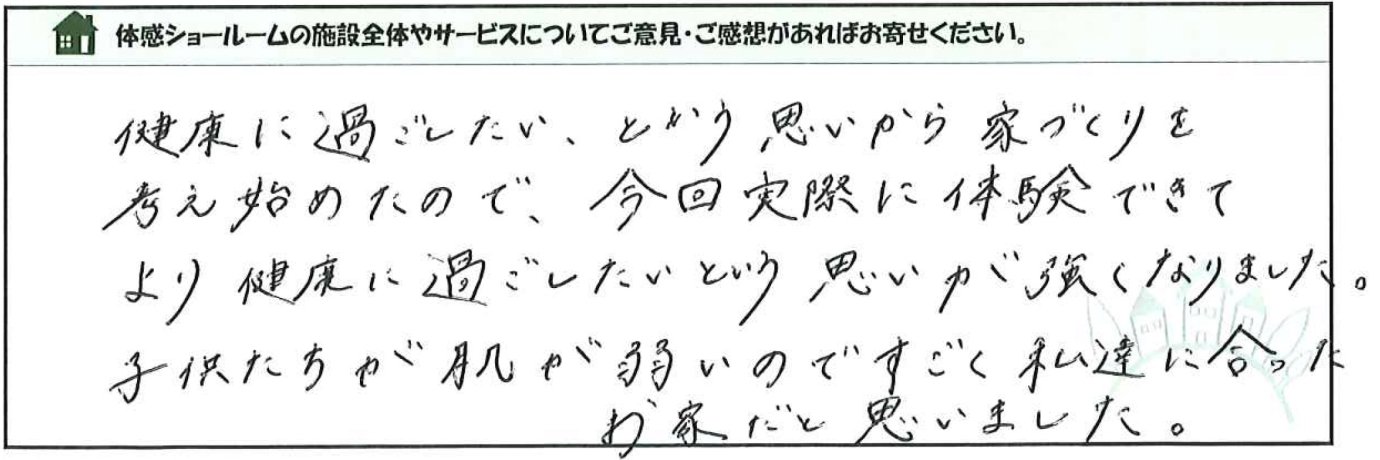 体感ショールームの施設全体やサービスについてご意見・ご感想があればお寄せください。
健康に過ごしたい、という思いから家づくりを
考え始めたので、今回実際に体験できて
より健康に過ごしたいという思いが強くなりました。
子供たちが肌が弱いのですごく私達に合った
お家だと思いました。